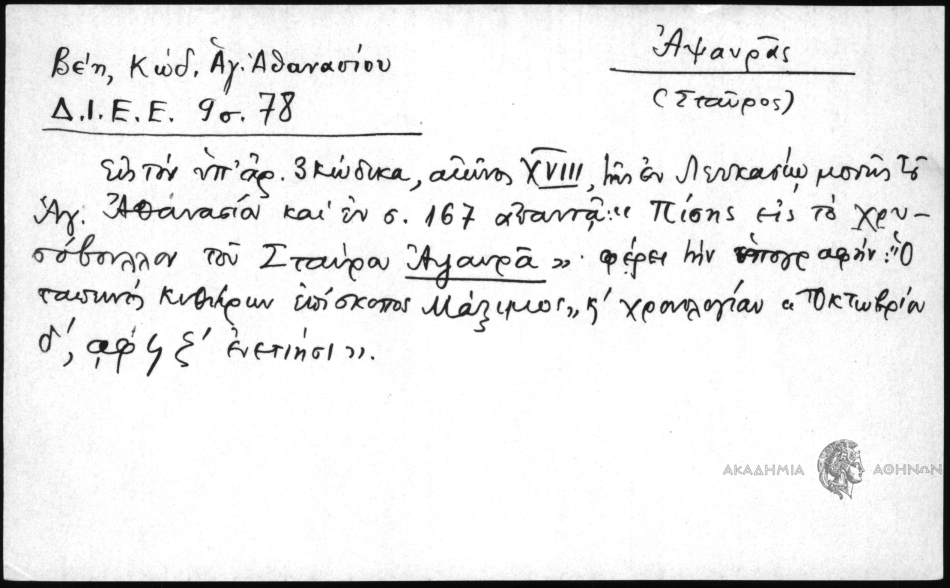 Ἀψαυρᾶς
(Σταῦρος)
Βέη, Κώδ. Ἁγ. Ἀθανασίου
Δ.Ι.Ε.Ε. 9 σ. 78
Εἰς τὸν ὑπ' ἀρ. 3 κώδικα, αἰῶνος XVIII, τῆς ἐν Λευκασίῳ μονῆς τοῦ
Ἁγ. Ἀθανασίου καὶ ἐν σ. 167 ἀπαντᾷ: « Πίσης εἰς τὸ χρυ-
σόβουλλον τοῦ Σταύρου Ἀψαυρᾶ ». φέρει τὴν ὑπογραφήν: «Ὁ
ταπεινὸς Κυθήρων ἐπίσκοπος Μάξιμος» κ' χρονολογίαν « Ὀκτωβρίου
δ', αφ ξ' ἐνετίησι ».
ΑΚΑΔΗΜΙΑ ΑΘΗΝΩΝ